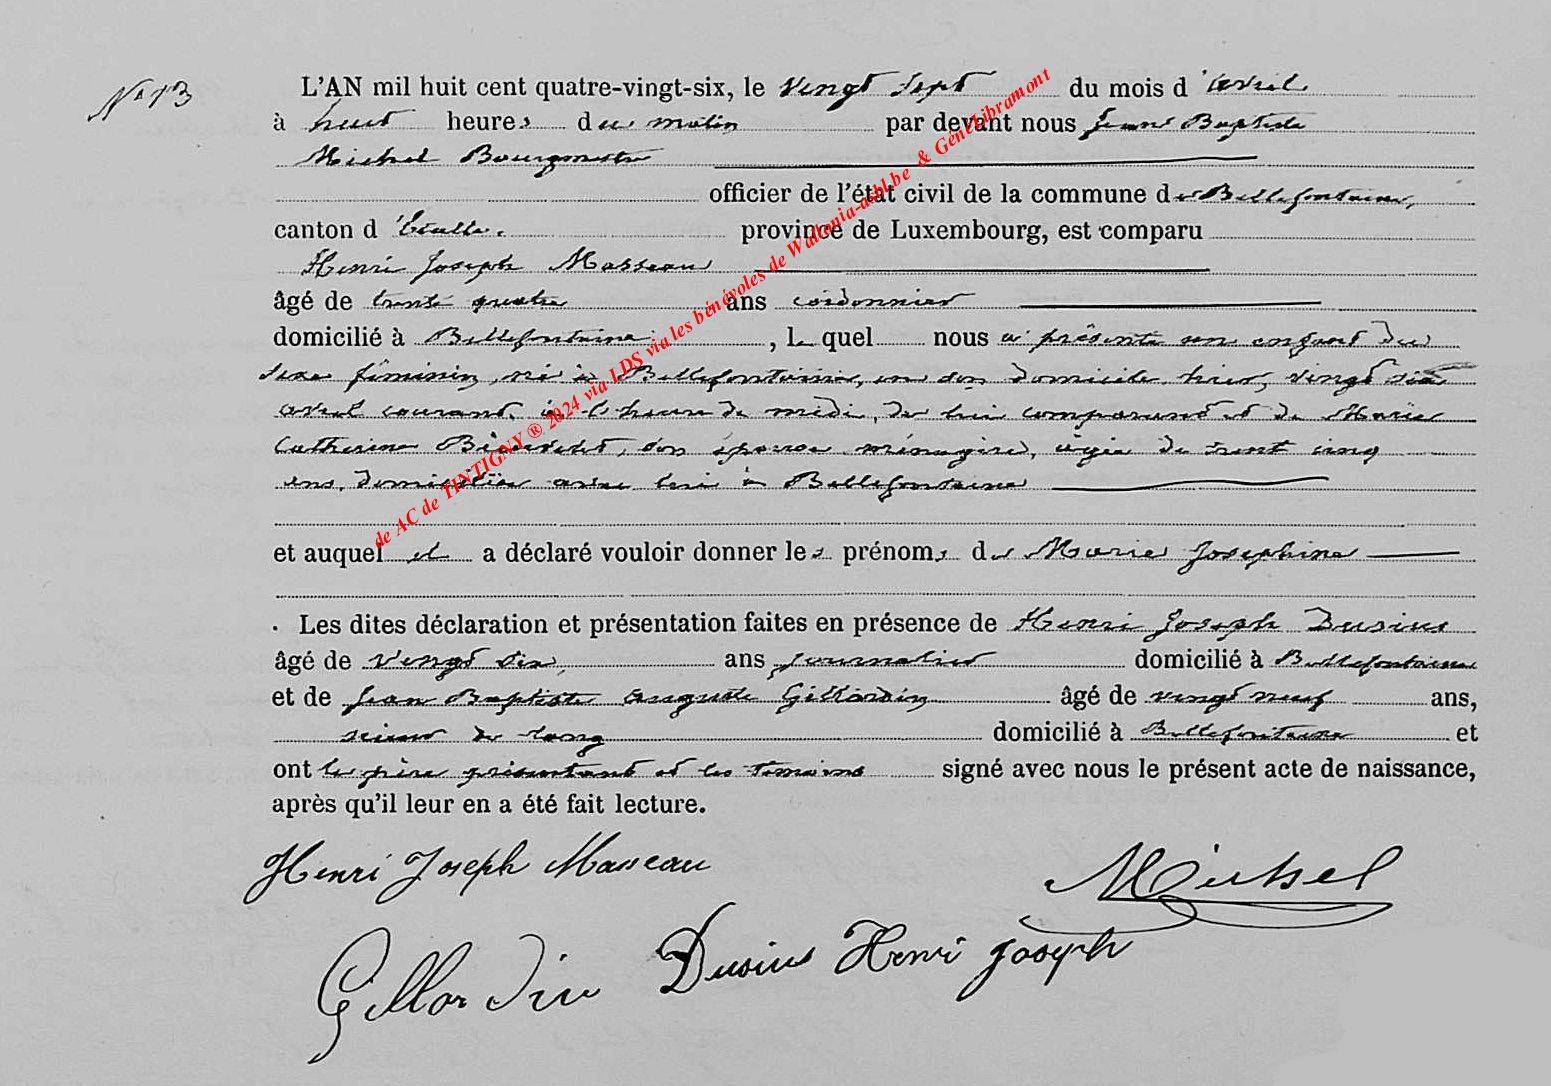 N° 13
L'AN mil huit cent quatre-vingt-six, le vingt sept du mois d'avril
à huit heures du matin par devant nous Jean Baptiste
Michel Bourgmestre
officier de l'état civil de la commune de Bellefontaine,
canton d'Etalle. province de Luxembourg, est comparu
Henri Joseph Masseau
âgé de trente quatre ans cordonnier
domicilié à Bellefontaine, lequel nous a présenté un enfant du
sexe féminin, né à Bellefontaine, en son domicile hier, vingt six
avril courant, à l'heure de midi, de lui comparant et de Marie
Catherine son épouse ménagère, âgée de trent cinq
ans, domiciliée avec lui à Bellefontaine
et auquel il a déclaré vouloir donner les prénoms de Marie Josephine
Les dites déclaration et présentation faites en présence de Henri Joseph Dusius
âgé de vingt six, ans journalier domicilié à Bellefontaine
et de Jean Baptiste Auguste Gillardin âgé de vingt neuf ans,
scieur de long domicilié à Bellefontaine et
ont le père présentant et les témoins signé avec nous le présent acte de naissance,
après qu'il leur en a été fait lecture.
Henri Joseph Masseau
Michel
Gillardin Dusius Henri Joseph
de AC de TINTIGNY ® 2024 via LDS via les bénévoles de Wallonia-asbl.be & GénéLibramont